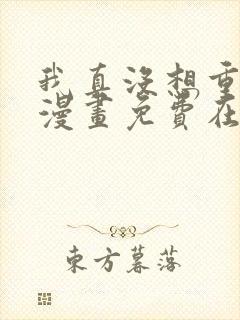 我真没想重
漫畫免費在
東方暮落